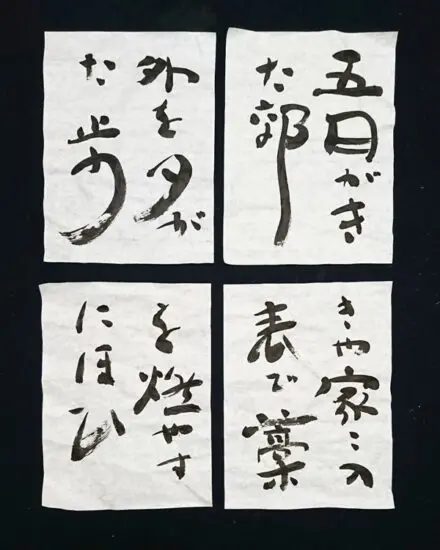 五日がき
た郊
外を夕が
た歩
きや家ニ入
表で藁
を燃やす
にほひ